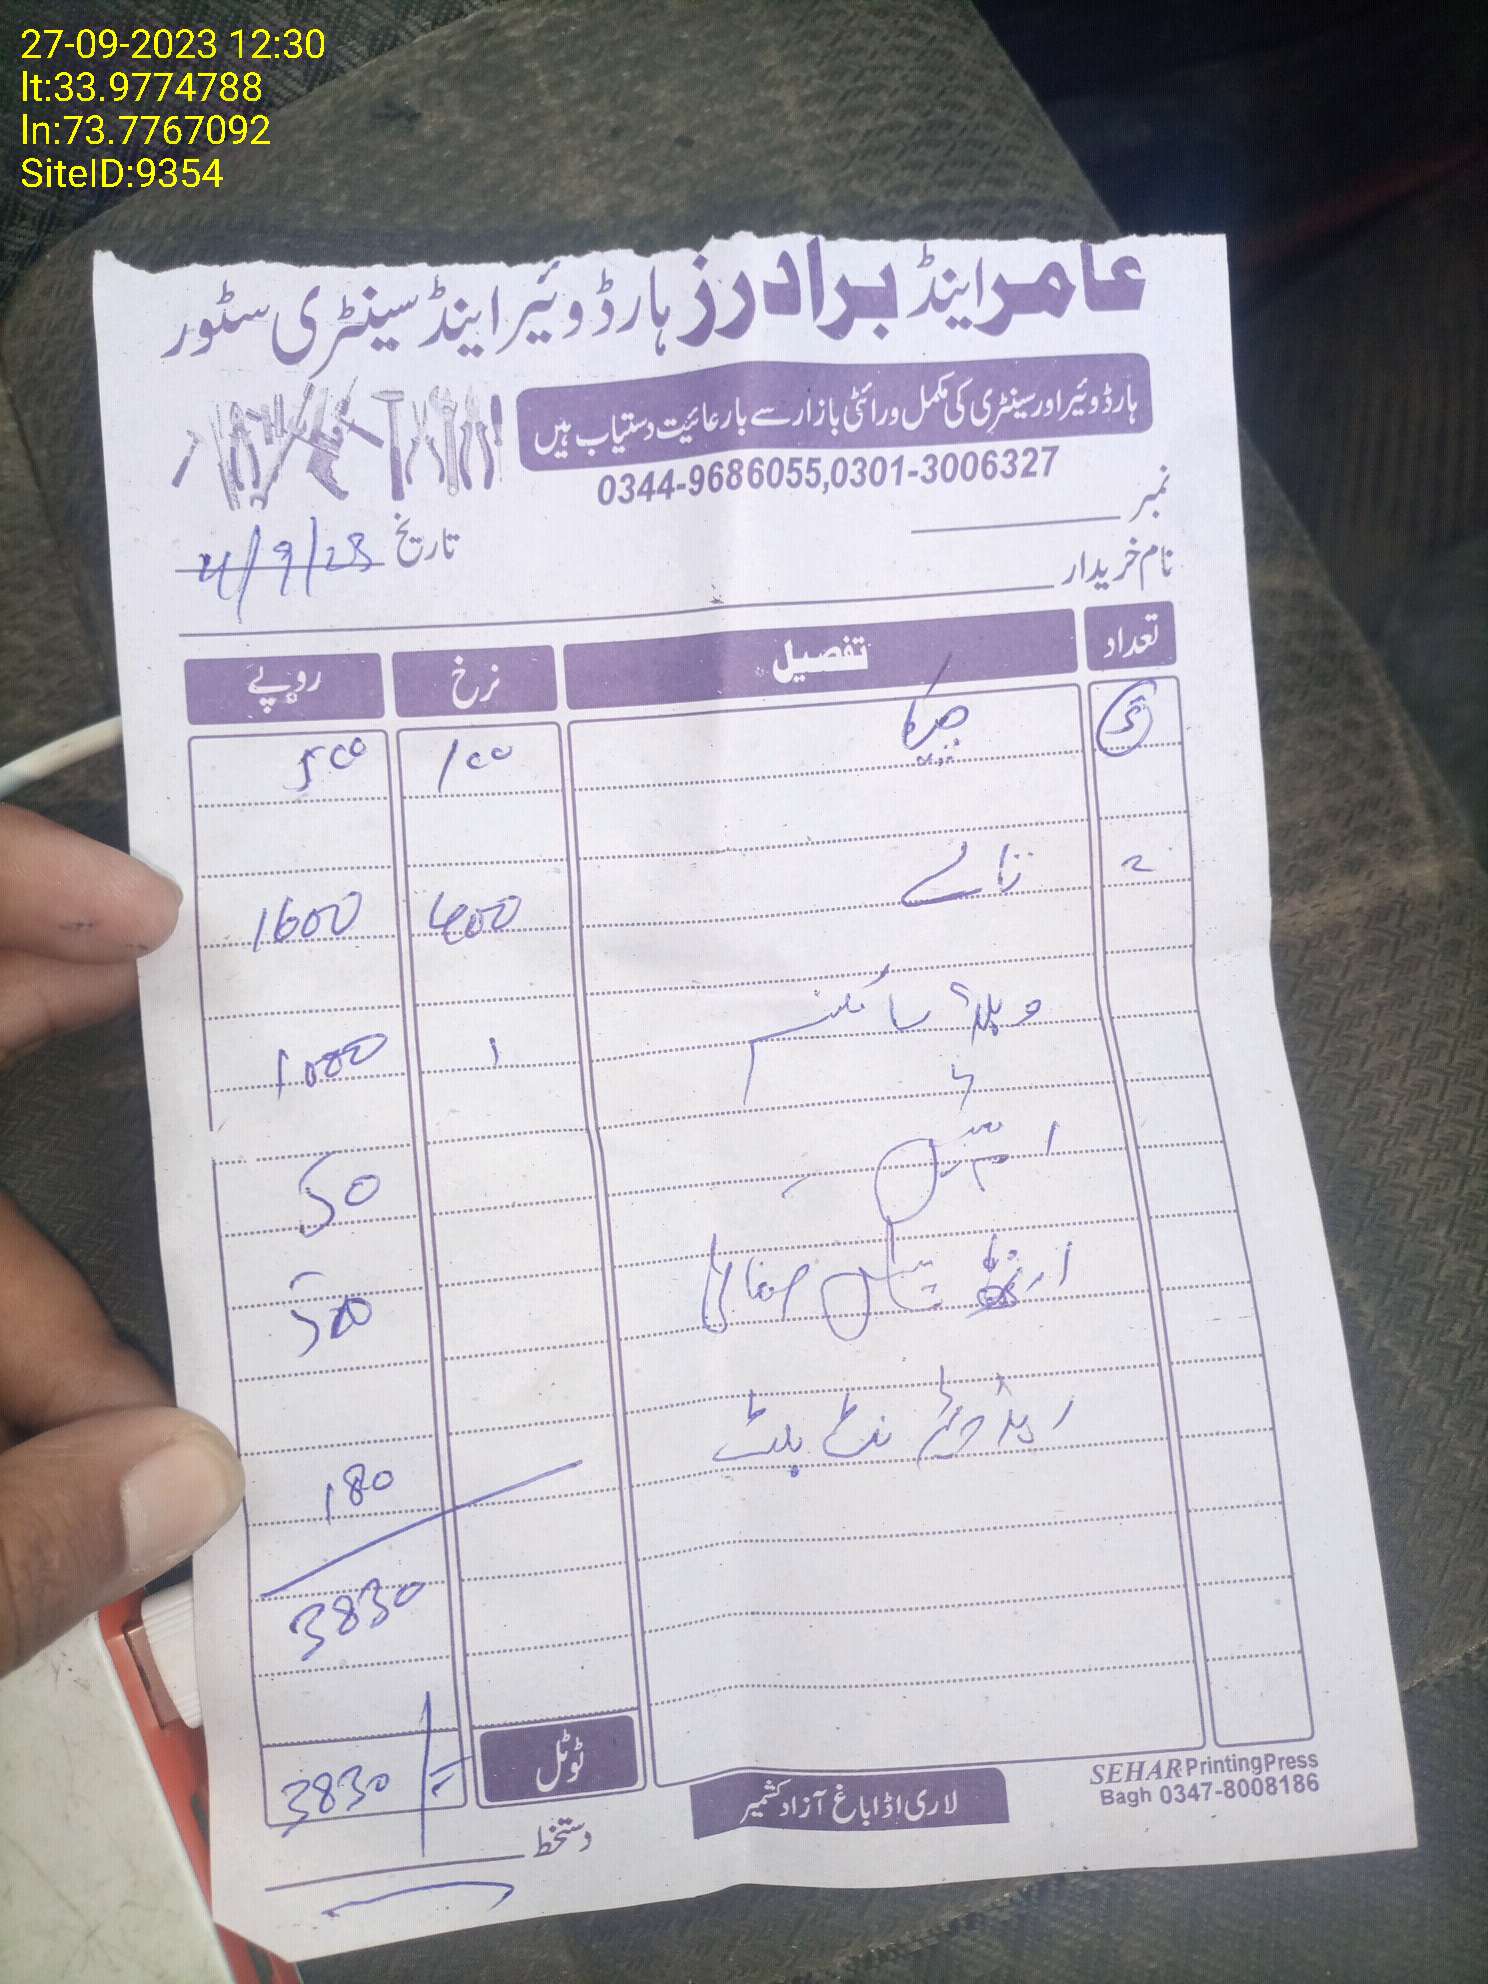 27-09-2023 12:30
lt:33.9774788
ln:73.7767092
SiteID:9354
عامر اینڈ برادرز ہارڈوئیر اینڈ سینٹری سٹور
ہارڈوئیر اور سینٹری کی مکمل ورائٹی بازار سے بارعائیت دستیاب ہیں
0344-9686055,0301-3006327
نمبر
تاریخ 4/9/23
نام خریدار
تعداد تفصیل نرخ روپے
5 100 500
2 تالے 400 1600
1000
50
500
نٹ بلٹ 180
3830
ٹوٹل 3830
دستخط
لاری اڈا باغ آزاد کشمیر
SEHAR Printing Press
Bagh 0347-8008186